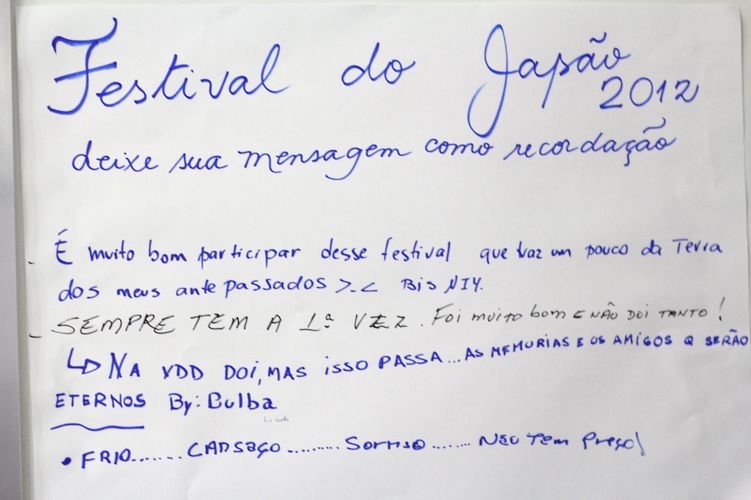 Festival do Japão
2012
deixe sua mensagem como recordação
- É muito bom participar desse festival que traz um pouco da Terra
dos meus antepassados >.<
- SEMPRE TEM A 1ª VEZ. Foi muito bom E NÃO DOI TANTO!
↳ NA VDD DOI, MAS ISSO PASSA... AS MEMORIAS E OS AMIGOS Q SERÃO
ETERNOS By: Bulba
• FRIO....... CANSAÇO......... Sorriso....... Não Tem Preço!